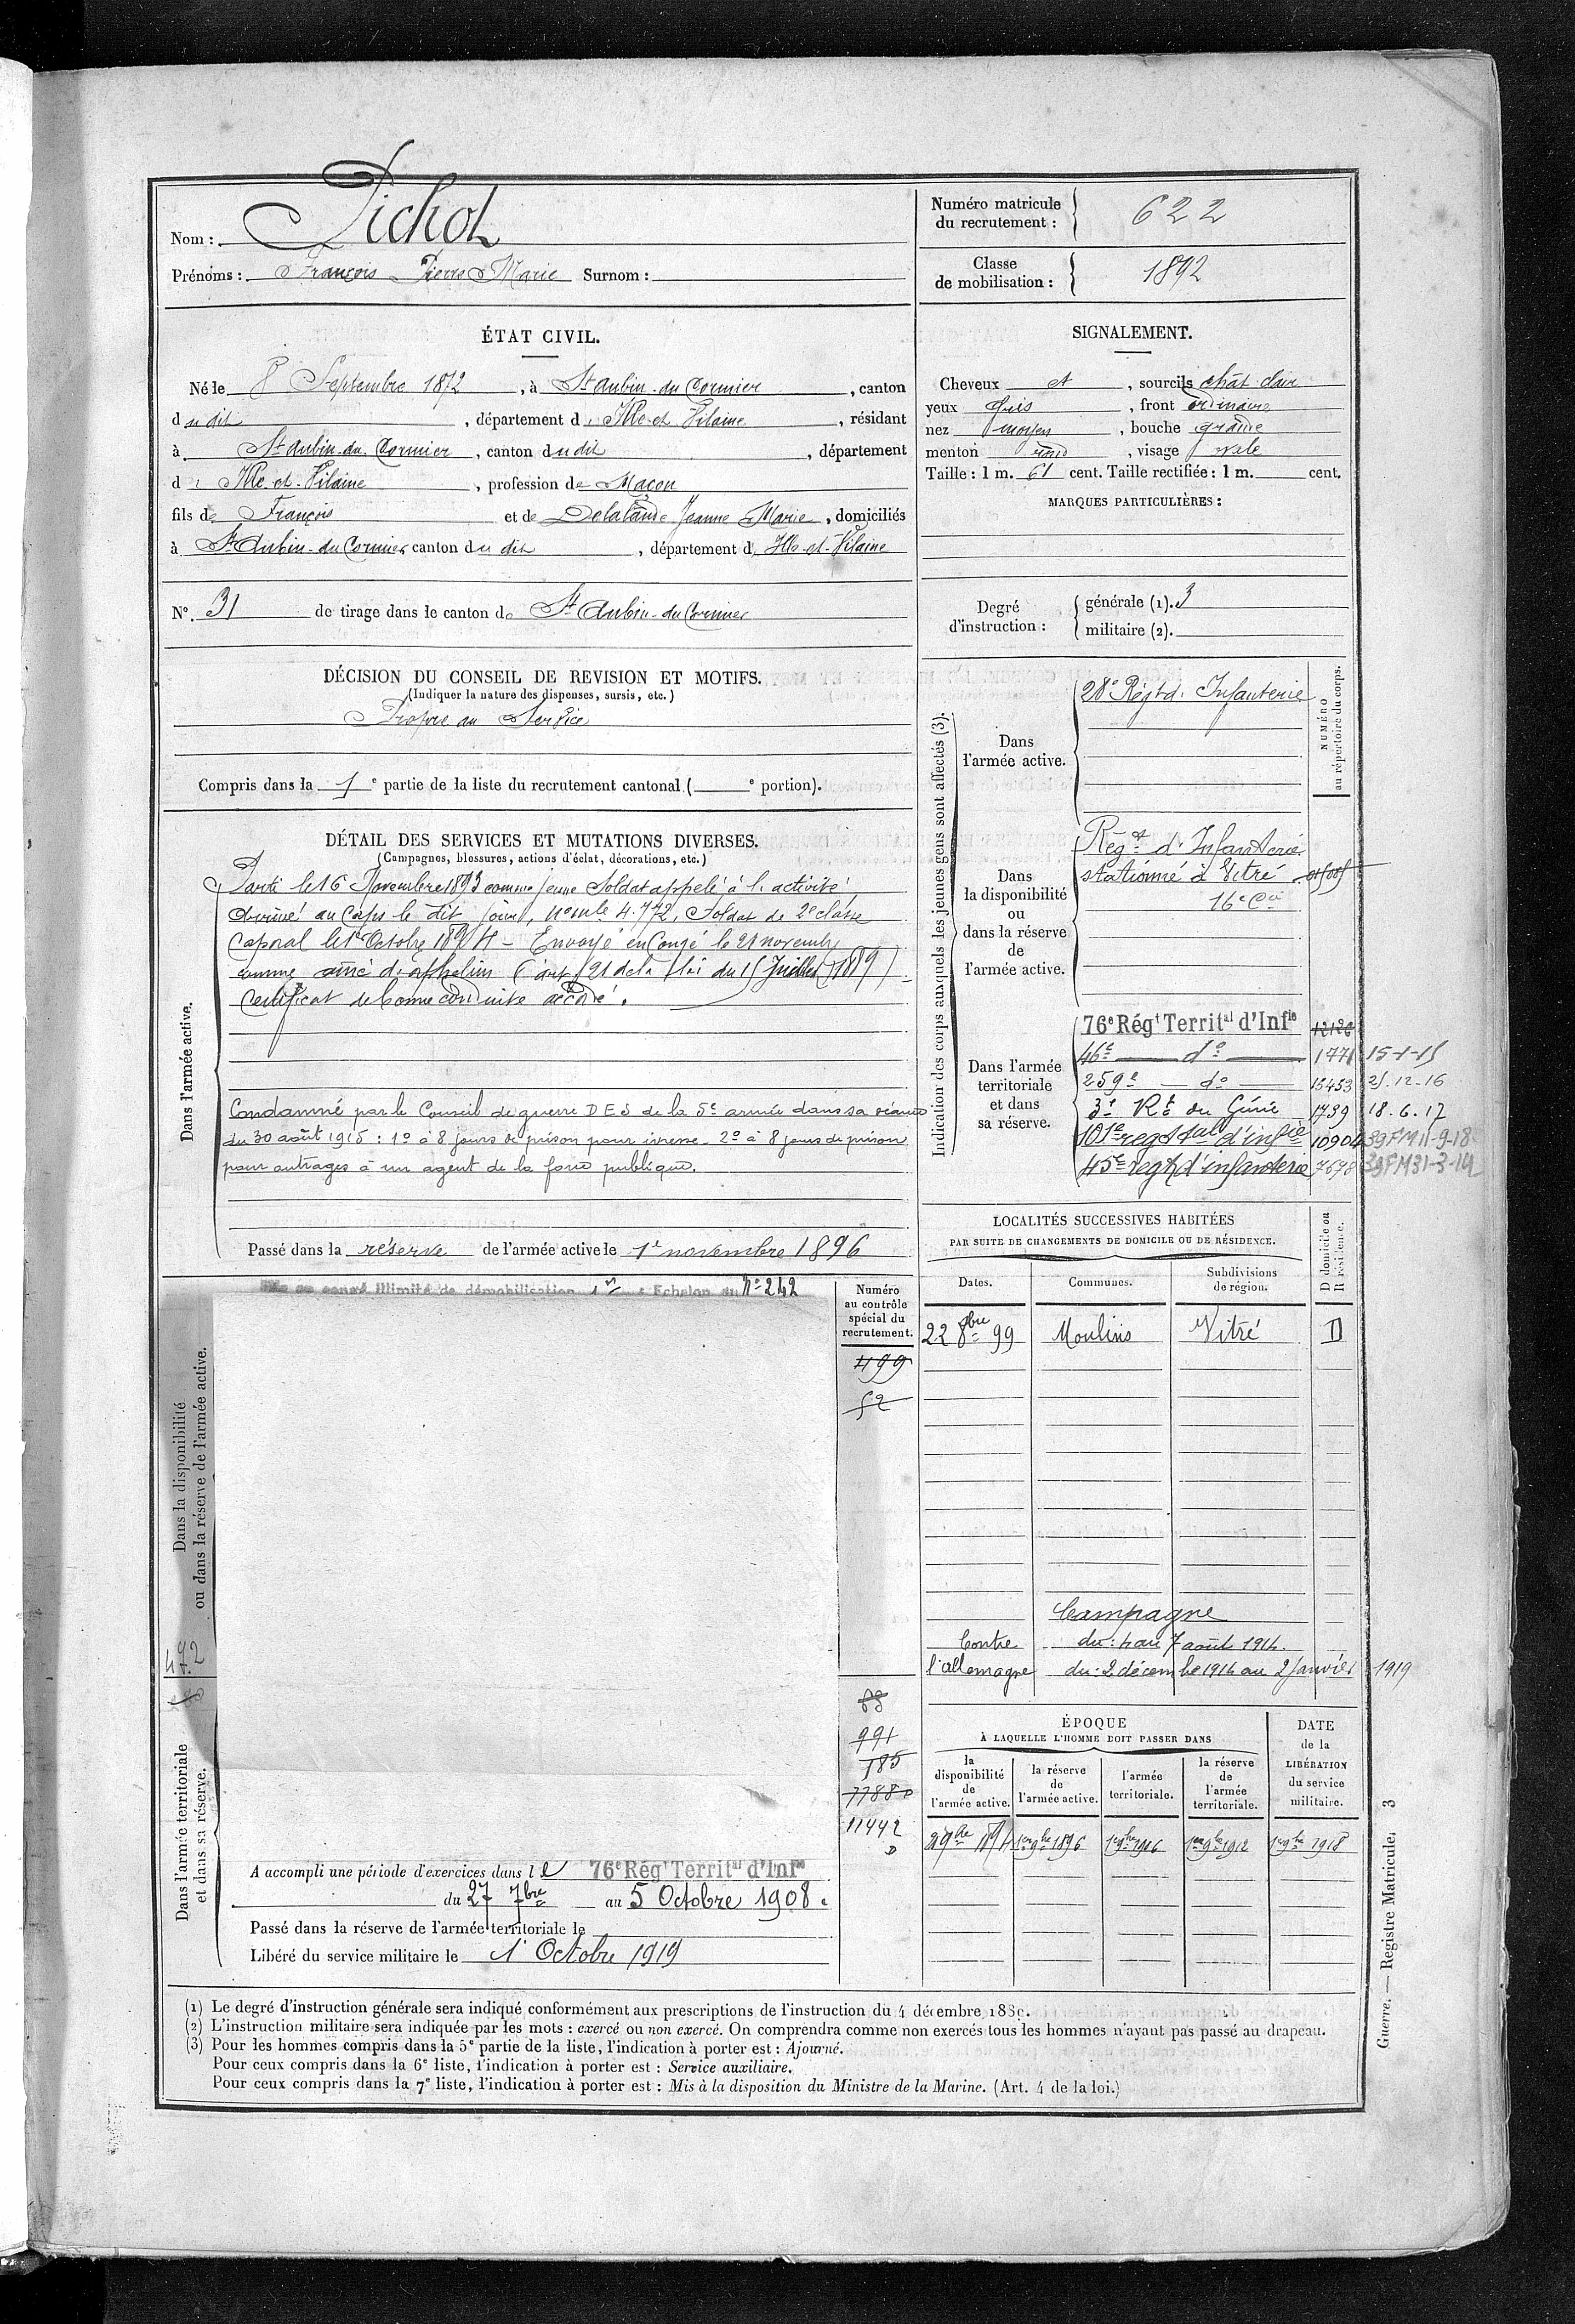 Nom : Pichot
Prénoms : François Pierre Marie Surnom :
Numéro matricule du recrutement : 622
Classe de mobilisation : 1892
ÉTAT CIVIL.
Né le 8 Septembre 1872, à St Aubin-du Cormier, canton
du dit, département d'Ille-et-Vilaine, résidant
à St Aubin-du-Cormier, canton du dit, département
d'Ille-et-Vilaine, profession de Maçon
fils de François et de Delalande Jeanne Marie, domiciliés
à St Aubin-du Cormier canton du dit, département d'Ille-et-Vilaine
N° 31 de tirage dans le canton de St Aubin-du Cormier
SIGNALEMENT.
Cheveux et, sourcils chât-clair
yeux Gris, front ordinaire
nez moyen, bouche grande
menton rond, visage ovale
Taille : 1 m. 61 cent. Taille rectifiée : 1 m. cent.
MARQUES PARTICULIÈRES :
Degré d'instruction : générale (1). 3
militaire (2).
DÉCISION DU CONSEIL DE REVISION ET MOTIFS.
(Indiquer la nature des dispenses, sursis, etc.)
Propre au Service
Compris dans la 1e partie de la liste du recrutement cantonal ( e portion).
DÉTAIL DES SERVICES ET MUTATIONS DIVERSES.
(Campagnes, blessures, actions d'éclat, décorations, etc.)
Dans l'armée active.
Parti le 16 Novembre 1893 comme jeune Soldat appelé à l'activité
Arrivé au Corps le dit jour, n° mle 4.772, Soldat de 2e classe
Caporal le 1er Octobre 1894 – Envoyé en Congé le 21 novembre
comme aîné d'orphelins (art 21 de la loi du 15 Juillet 1889) –
Certificat de bonne conduite accordé.
Condamné par le Conseil de guerre D E S de la 5e armée dans sa séance
du 30 août 1915 : 1° à 8 jours de prison pour ivresse – 2° à 8 jours de prison
pour outrages à un agent de la force publique.
Passé dans la réserve de l'armée active le 1er novembre 1896
Indication des corps auxquels les jeunes gens sont affectés (3).
NUMÉRO au répertoire du corps.
Dans l'armée active.
28e Régt d'Infanterie
Dans la disponibilité ou dans la réserve de l'armée active.
Régt d'Infanterie
stationné à Vitré
16e Cie
Dans l'armée territoriale et dans sa réserve.
76e Régt Territal d'Infie 12126
46e — do — 1771 15-1-15
259e — do — 15453 21.12-16
3e Rt du Génie 1739 18.6.17
101e regt tal d'infie 10904 39FM 11-9-18
45e regt d'infanterie 7698 39FM 31-3-19
LOCALITÉS SUCCESSIVES HABITÉES
PAR SUITE DE CHANGEMENTS DE DOMICILE OU DE RÉSIDENCE.
Dates. Communes. Subdivisions de région. D domicile ou R résidence.
22 8bre 99 Moulins Vitré D
Campagne
Contre du : 4 au 7 août 1914.
l'allemagne du : 2 décembre 1914 au 2 Janvier 1919
Mis en congé illimité de démobilisation 1er Echelon du N° 242
Numéro au contrôle spécial du recrutement.
499
52
Dans la disponibilité ou dans la réserve de l'armée active.
492
Dans l'armée territoriale et dans sa réserve.
88
991
185
7788 D
11442
D
A accompli une période d'exercices dans le 76e Régt Territal d'Infie
du 27 7bre au 5 Octobre 1908.
Passé dans la réserve de l'armée territoriale le
Libéré du service militaire le 1er Octobre 1919
ÉPOQUE
À LAQUELLE L'HOMME DOIT PASSER DANS
la disponibilité de l'armée active. la réserve de l'armée active. l'armée territoriale. la réserve de l'armée territoriale.
DATE de la LIBÉRATION du service militaire.
1er 9bre 1896 1er 9bre 1906 1er 9bre 1912 1er 9bre 1918
Guerre. — Registre Matricule. 3
(1) Le degré d'instruction générale sera indiqué conformément aux prescriptions de l'instruction du 4 décembre 1889.
(2) L'instruction militaire sera indiquée par les mots : exercé ou non exercé. On comprendra comme non exercés tous les hommes n'ayant pas passé au drapeau.
(3) Pour les hommes compris dans la 5e partie de la liste, l'indication à porter est : Ajourné.
Pour ceux compris dans la 6e liste, l'indication à porter est : Service auxiliaire.
Pour ceux compris dans la 7e liste, l'indication à porter est : Mis à la disposition du Ministre de la Marine. (Art. 4 de la loi.)